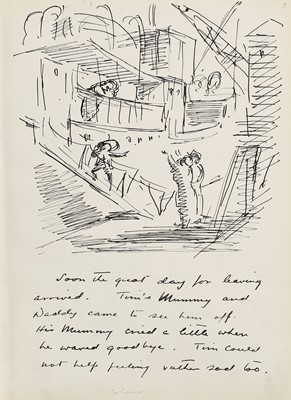 Soon the great day for leaving
arrived. Tim's Mummy and
Daddy came to see him off.
His Mummy cried a little when
he waved goodbye. Tim could
not help feeling rather sad too.